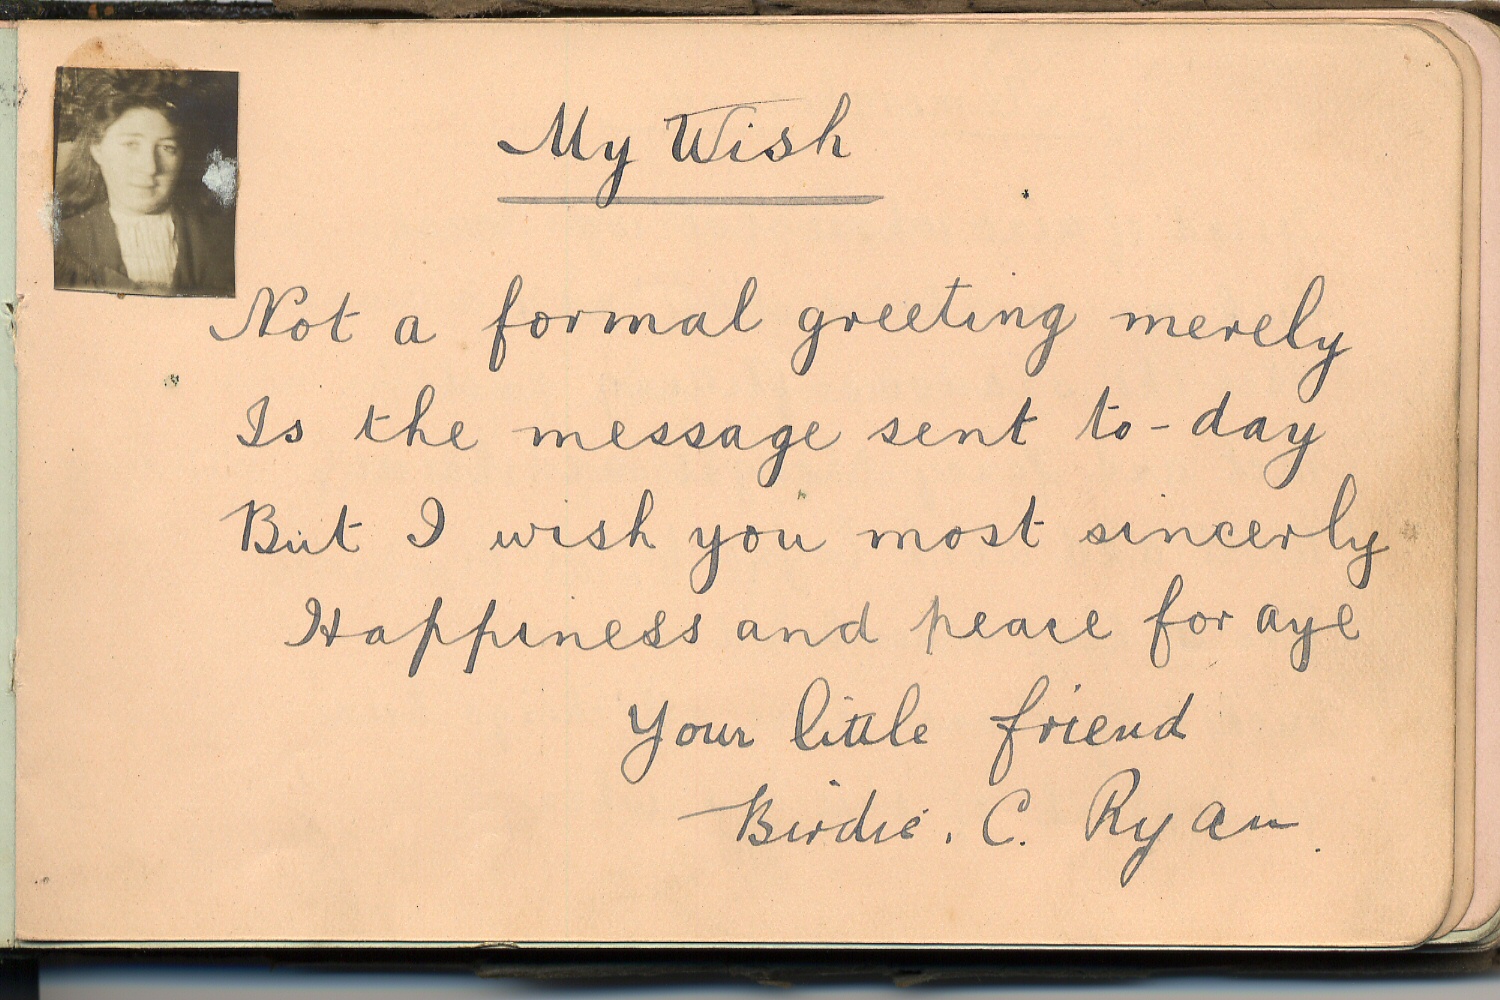 My Wish
Not a formal greeting merely
Is the message sent to-day
But I wish you most sincerly
Happiness and peace for aye
Your little friend
Birdie. C. Ryan.